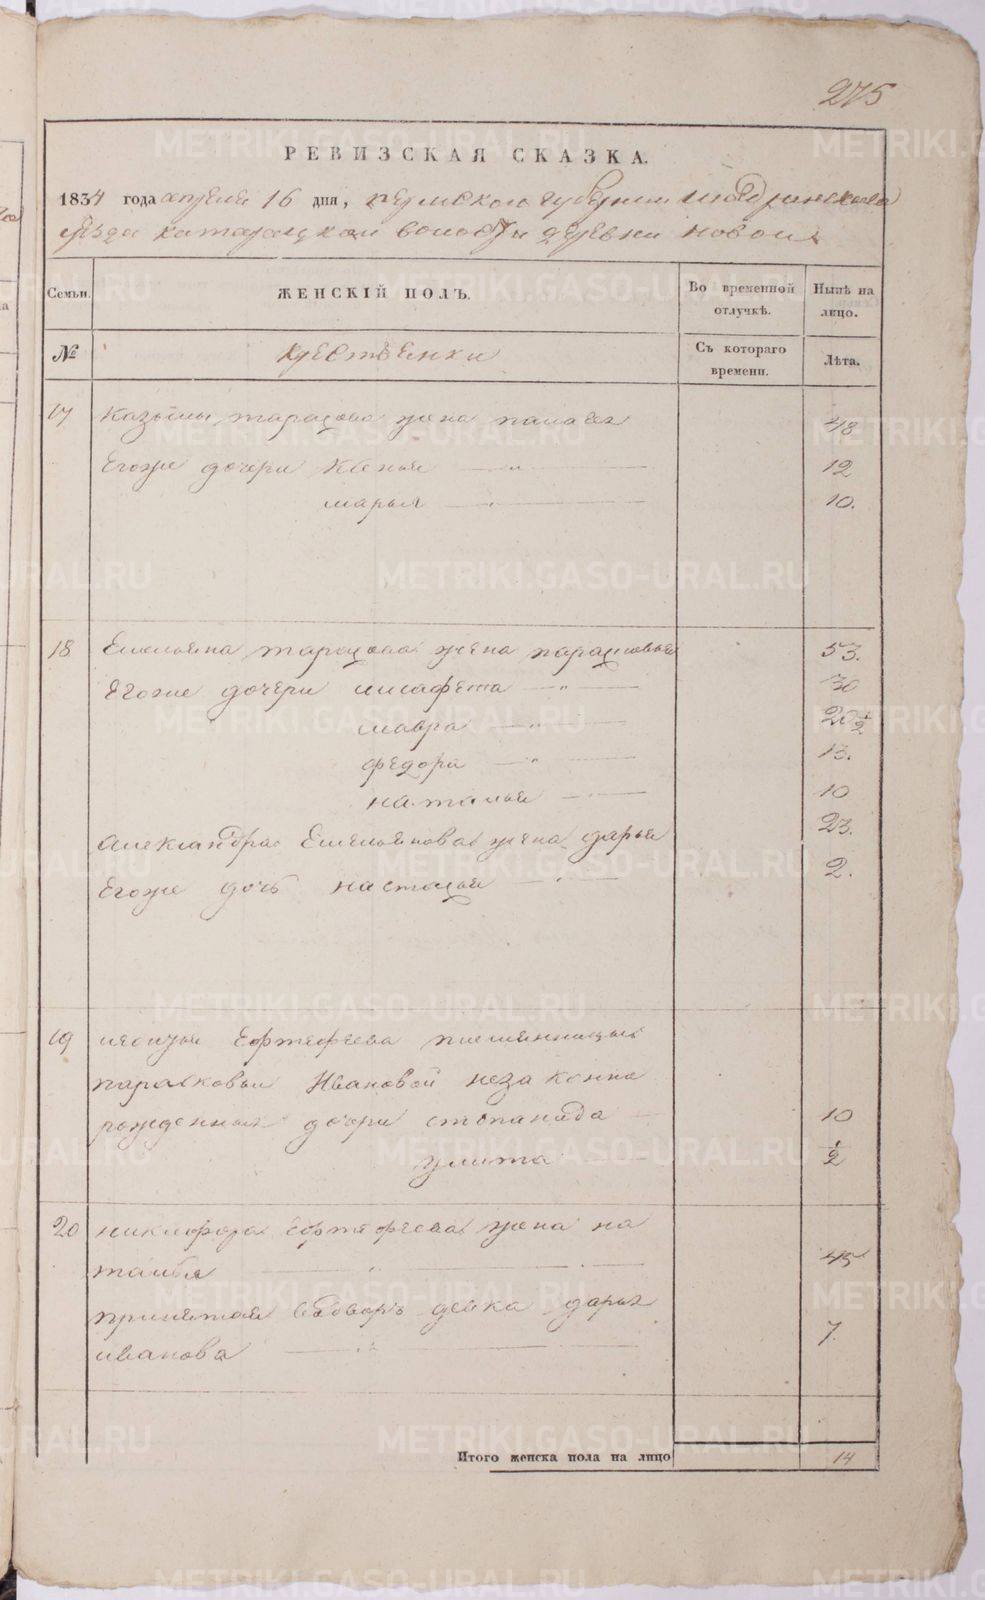 275
РЕВИЗСКАЯ СКАЗКА.
1834 года апреля 16 дня, пермской губернии шадринскова
уезда катарацкой волости деревни новой
Семьи. ЖЕНСКІЙ ПОЛЪ. Во временной отлучкѣ. Нынѣ на лицо.
№ крестьенки Съ котораго времени. Лѣта.
17 Казьмы тарасова жена палагея 48
Егоже дочери Ксенья 12
марья 10.
18 Емельяна тарасова жена парасковья 53.
Егоже дочери лисафета 30
мавра 20 1/2
федора 13.
наталья 10
александра Емельянова жена дарья 23.
Егоже дочь настасья 2.
19 Ефтефеева племянницы
парасковьи Ивановой незаконно
рожденныя дочери степанида 10
улита 1/2
20 никифора Ефтефеева жена на
талья 45
принятая девка дарья
иванова 7.
Итого женска пола на лицо 14
METRIKI.GASO-URAL.RU